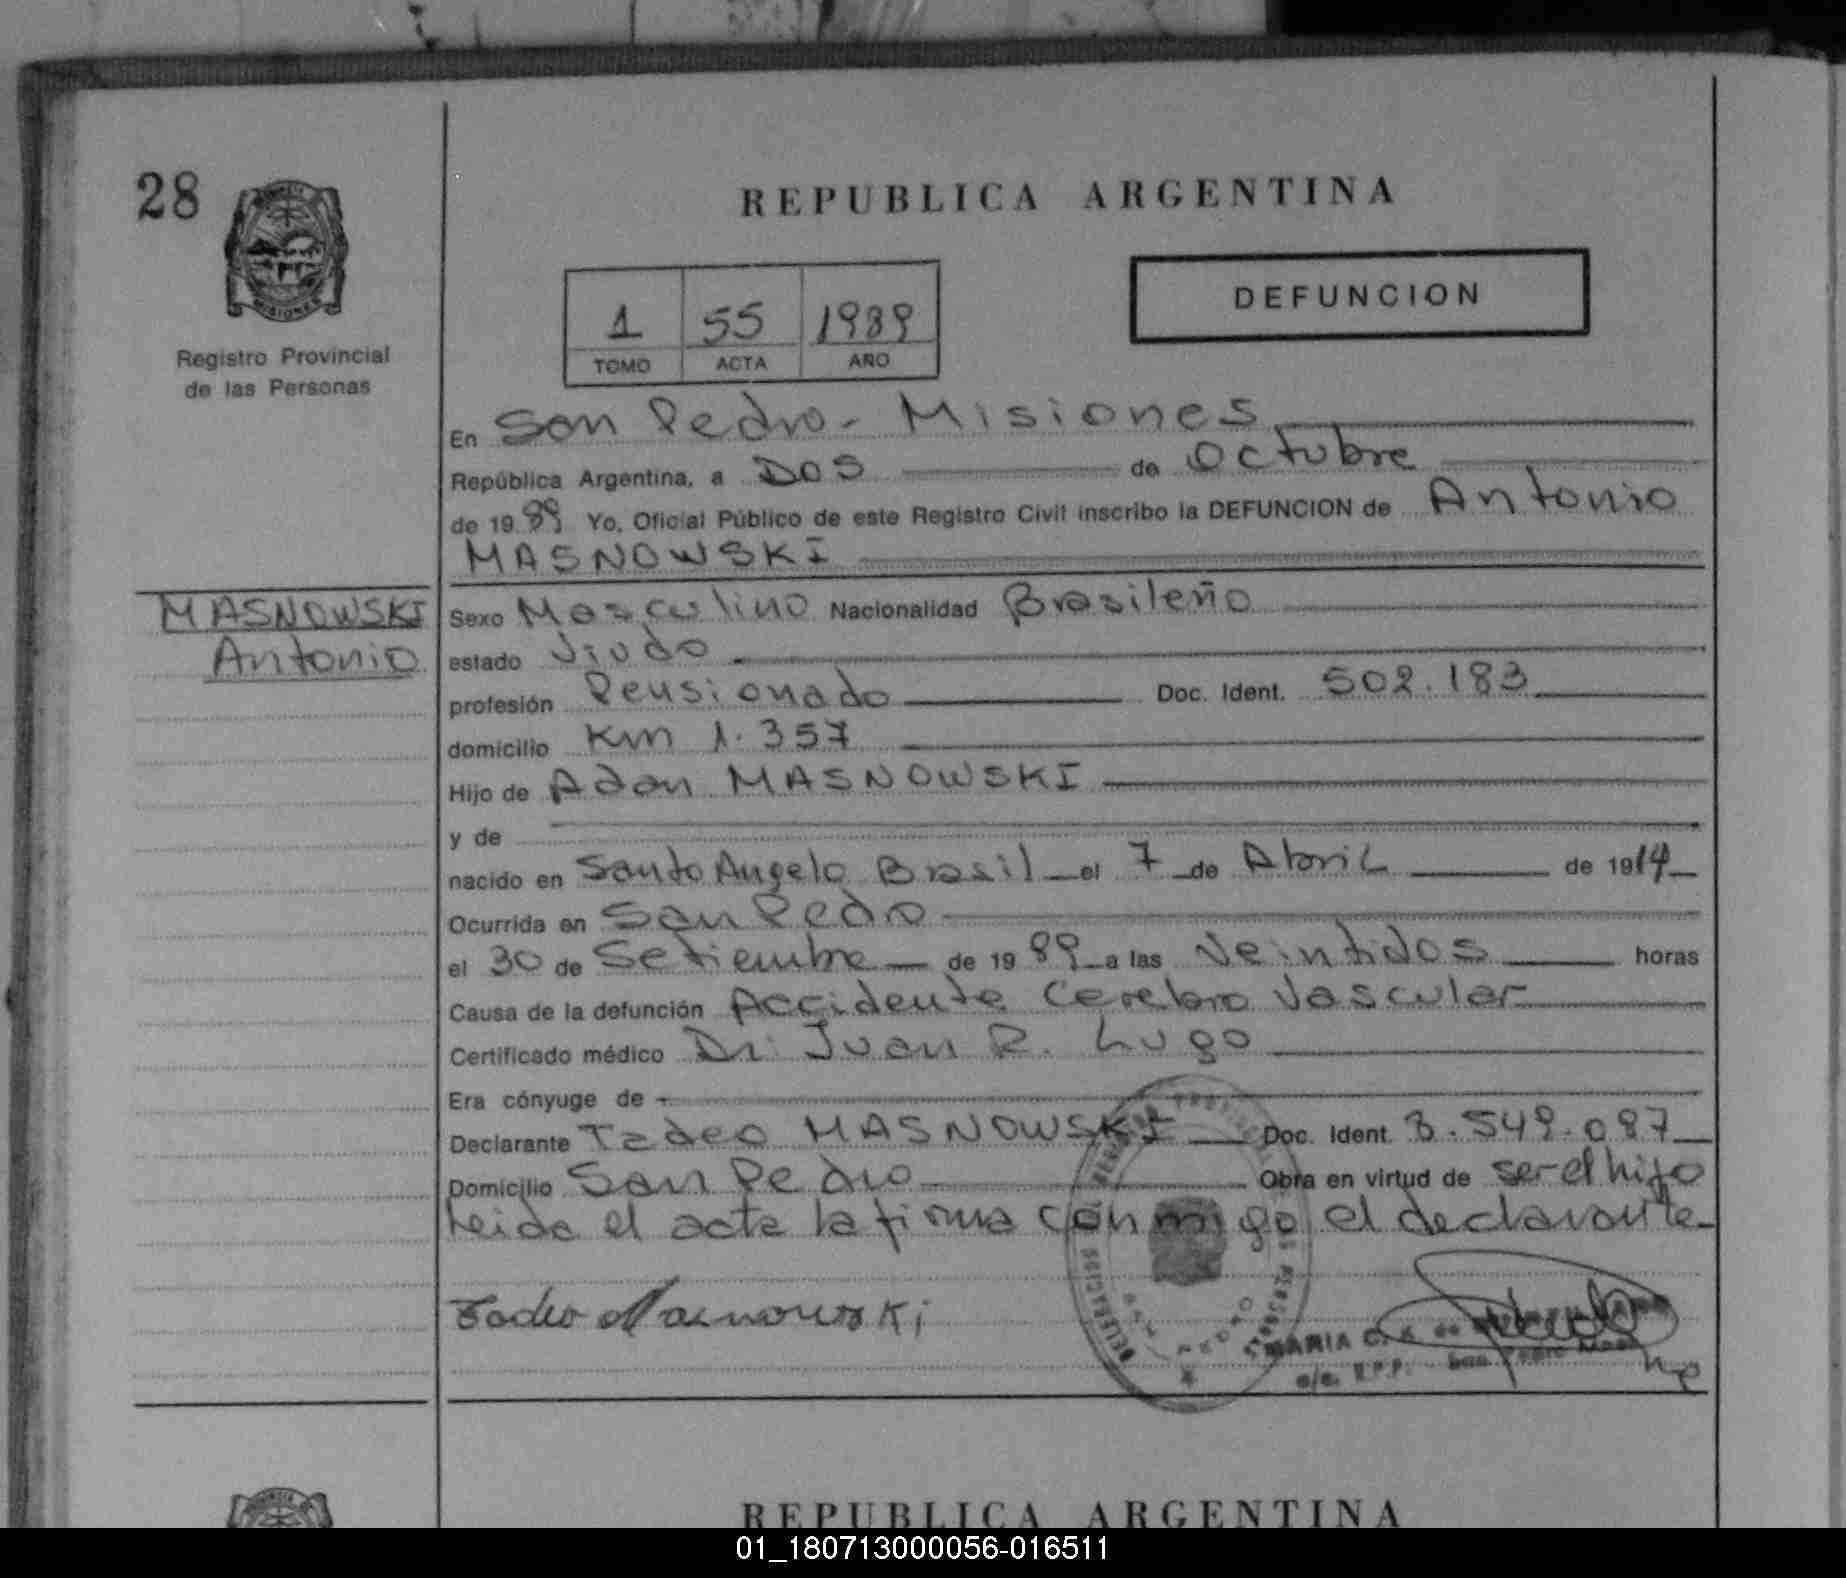 28
REPUBLICA ARGENTINA
DEFUNCION
1 55 1989
TOMO ACTA AÑO
Registro Provincial
de las Personas
En San Pedro - Misiones
República Argentina, a DOS de Octubre
de 1989 Yo, Oficial Público de este Registro Civil inscribo la DEFUNCION de Antonio
MASNOWSKI
MASNOWSKI
Antonio
Sexo Masculino Nacionalidad Brasileño
estado Viudo
profesión Pensionado Doc. Ident. 502.183
domicilio Km 1.357
Hijo de Adan MASNOWSKI
y de
nacido en Santo Angelo Brasil el 7 de Abril de 1914
Ocurrida en San Pedro
el 30 de Setiembre de 1989 a las Veintidos horas
Causa de la defunción Accidente Cerebro Vascular
Certificado médico Dr. Juan R. Lugo
Era cónyuge de
Declarante Tadeo MASNOWSKI Doc. Ident. 8.549.087
Domicilio San Pedro Obra en virtud de ser el hijo
Leida el acta la firma conmigo el declarante
Tadeo Masnowski
MARIA C.
San Pedro
REPUBLICA ARGENTINA
01_180713000056-016511